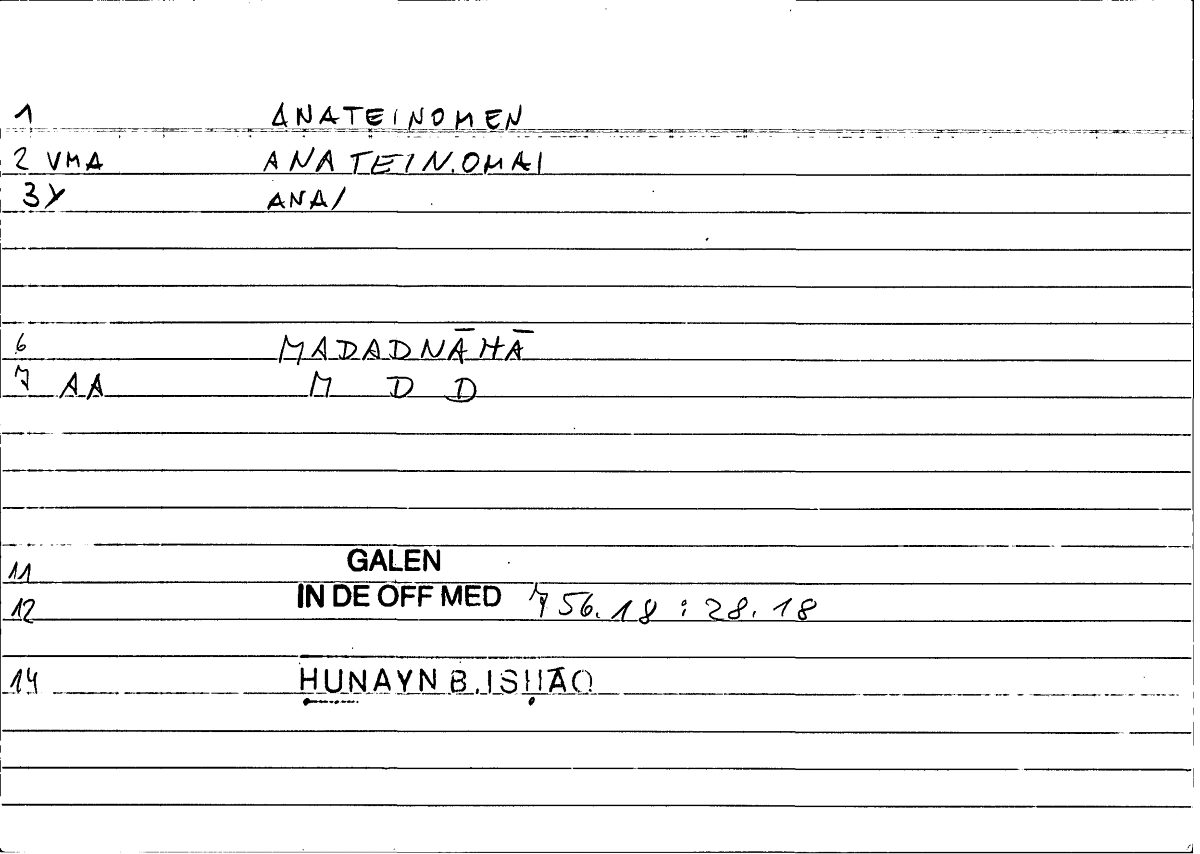 1 ANATEINOMEN
2 VMA ANATEIN.OMAI
3Y ANA/
6 MADADNĀHĀ
7 AA M D D
11 GALEN
12 IN DE OFF MED 756.18 : 28.18
14 ḤUNAYN B. ISḤĀQ